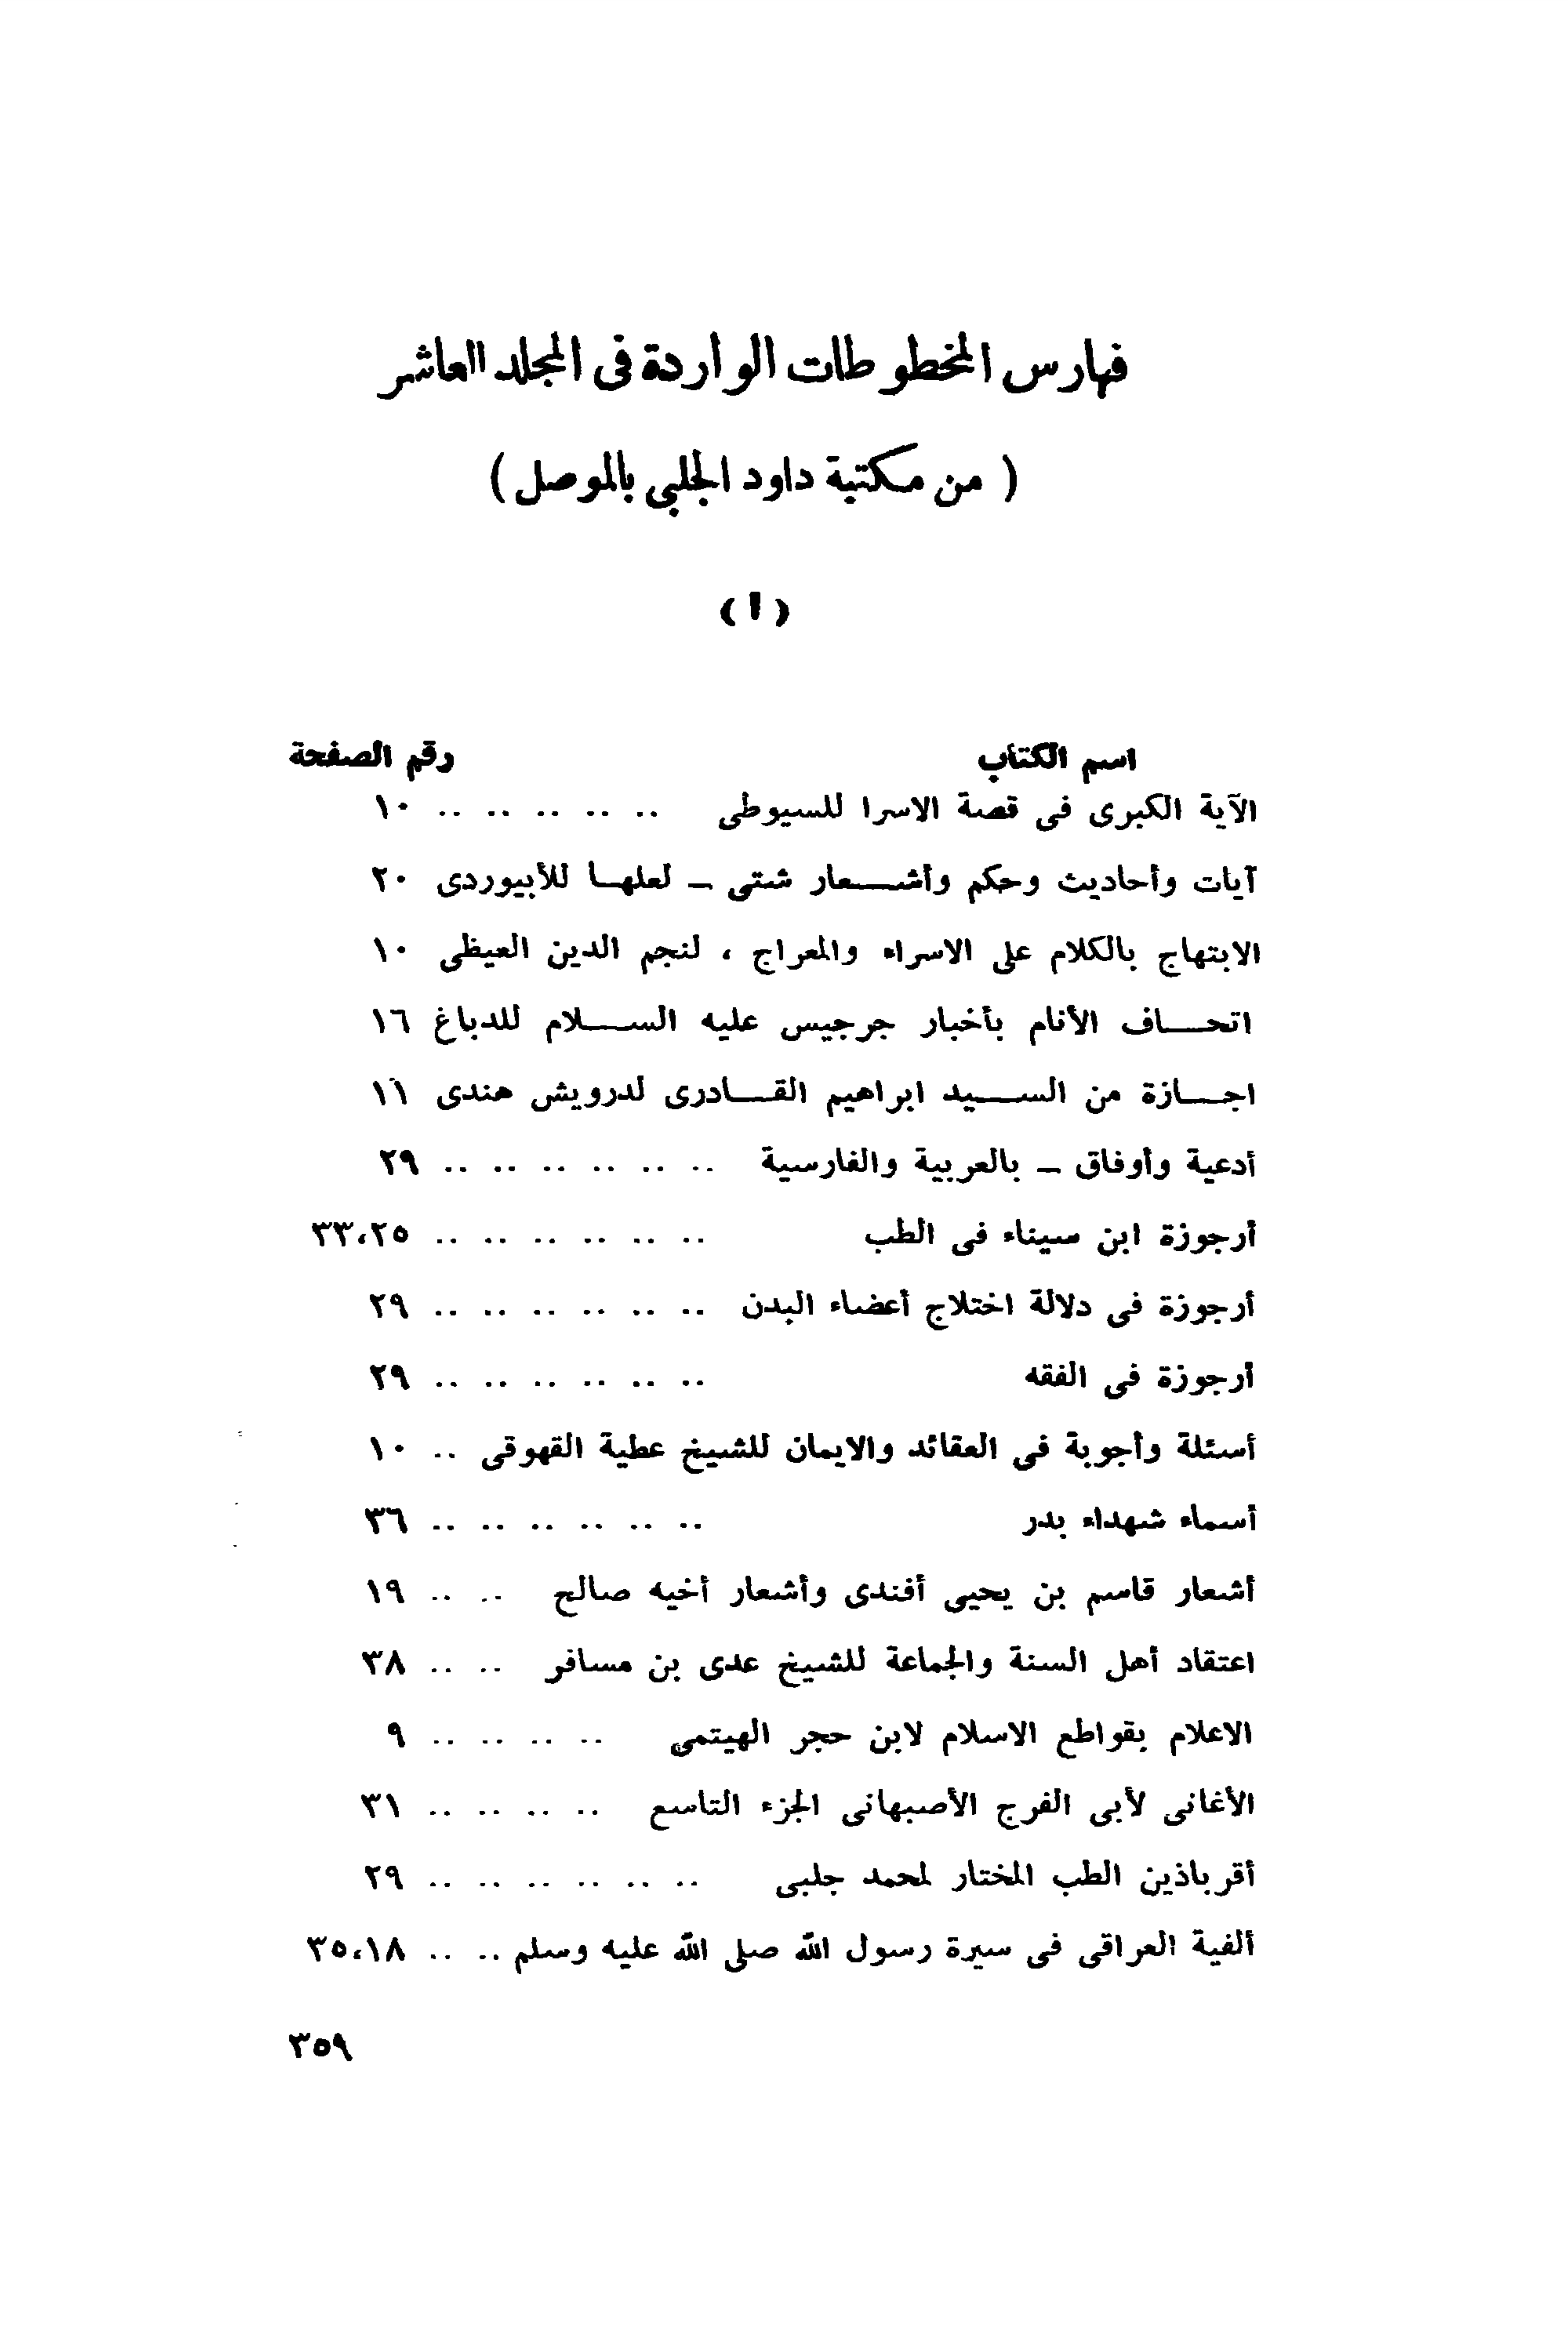 فهارس المخطوطات الواردة فى المجلد العاشر
( من مكتبة داود الجلبي بالموصل )
( ا )
اسم الكتاب رقم الصفحة
الآية الكبرى فى قصة الاسرا للسيوطى .. .. .. .. .. ١٠
آيات وأحاديث وحكم وأشعار شتى ــ لعلها للأبيوردى ٢٠
الابتهاج بالكلام على الاسراء والمعراج ، لنجم الدين العيظى ١٠
اتحاف الأنام بأخبار جرجيس عليه السلام للدباغ ١٦
اجازة من السيد ابراهيم القادرى لدرويش هندى ١١
أدعية وأوفاق ــ بالعربية والفارسية .. .. .. .. .. .. ٢٩
أرجوزة ابن سيناء فى الطب .. .. .. .. .. .. ٣٣،٢٥
أرجوزة فى دلالة اختلاج أعضاء البدن .. .. .. .. .. .. ٢٩
أرجوزة فى الفقه .. .. .. .. .. .. ٢٩
أسئلة وأجوبة فى العقائد والايمان للشيخ عطية القهوقى .. ١٠
أسماء شهداء بدر .. .. .. .. .. .. ٣٦
أشعار قاسم بن يحيى أفندى وأشعار أخيه صالح .. .. ١٩
اعتقاد أهل السنة والجماعة للشيخ عدى بن مسافر .. .. ٣٨
الاعلام بقواطع الاسلام لابن حجر الهيتمى .. .. .. .. ٩
الأغانى لأبى الفرج الأصبهانى الجزء التاسع .. .. .. .. ٣١
أقرباذين الطب المختار لمحمد جلبى .. .. .. .. .. .. ٢٩
ألفية العراقى فى سيرة رسول الله صلى الله عليه وسلم .. .. ٣٥،١٨
٣٥٩